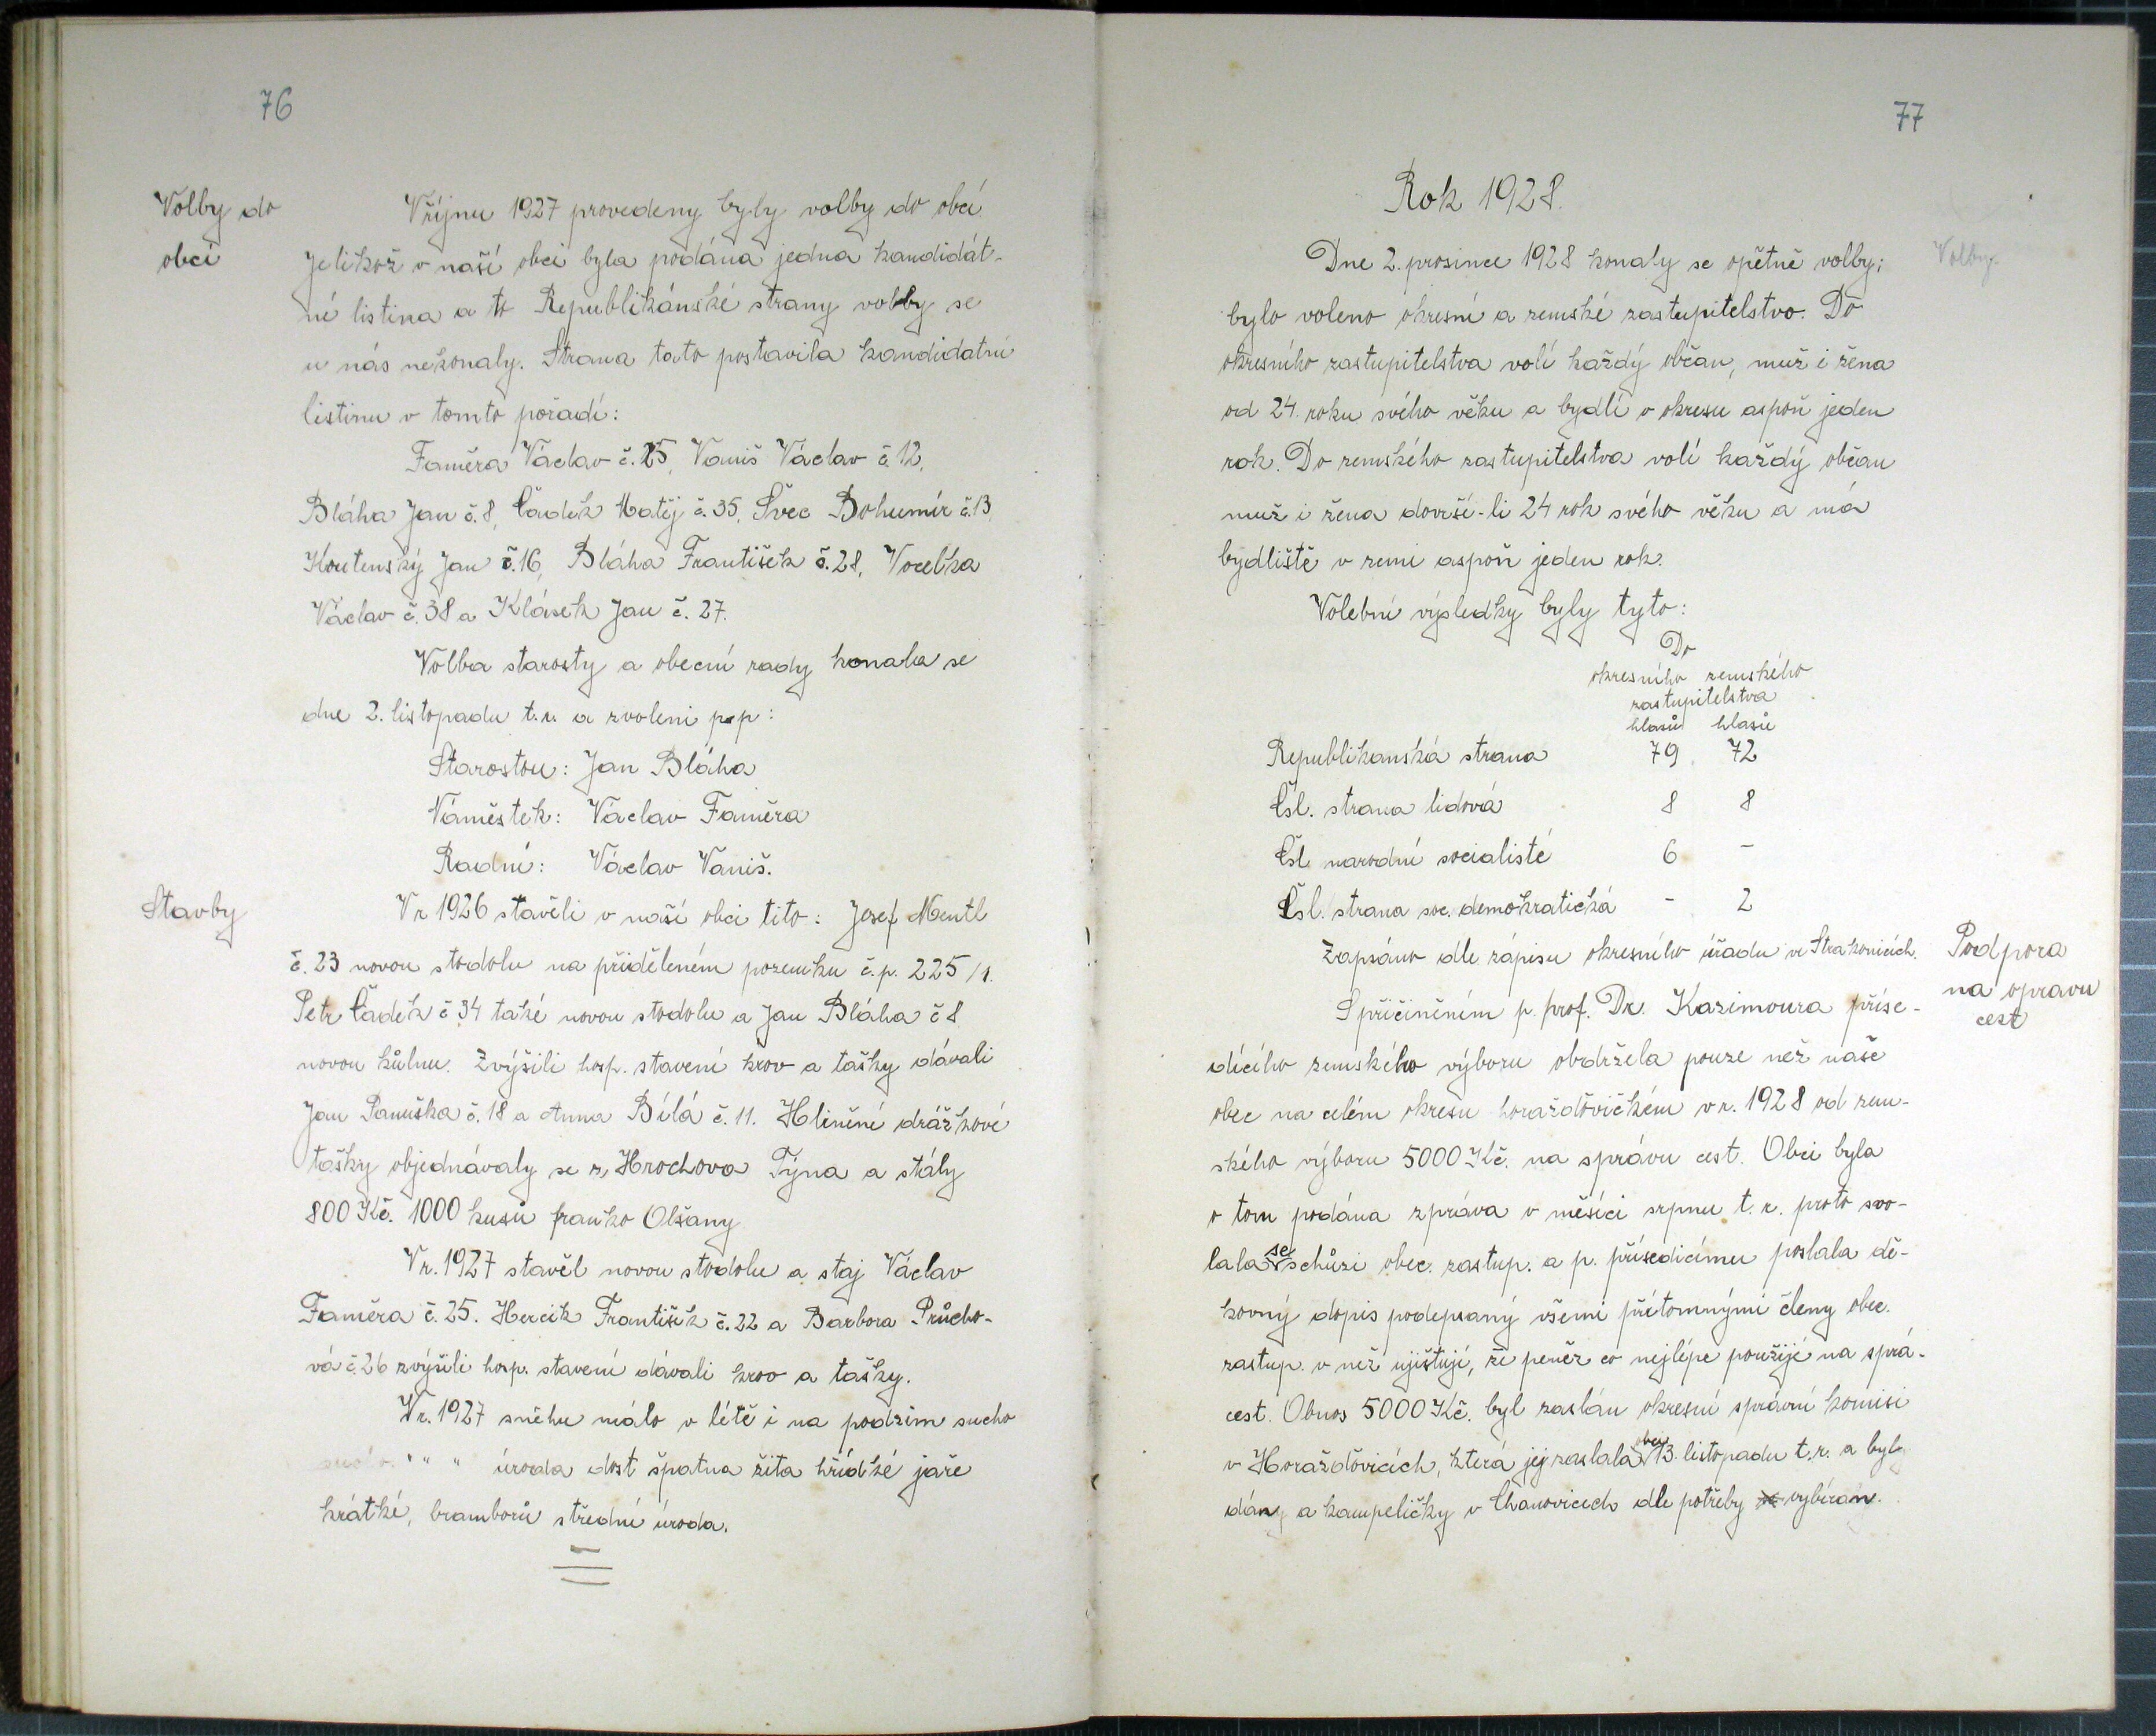 76
Volby do
obcí
V říjnu 1927 provedeny byly volby do obcí
Jelikož v naší obci byla podána jedna kandidát-
ní listina a to Republikánské strany volby se
u nás nekonaly. Strana tato postavila kandidatní
listinu v tomto pořadí:
Faměra Václav č. 25, Vaniš Václav č. 12,
Bláha Jan č. 8, Čadek Matěj č. 35, Švec Bohumír č. 13
Koutenský Jan č. 16, Bláha František č. 28, Vocelka
Václav č. 38 a Klásek Jan č. 27.
Volba starosty a obecní rady konala se
dne 2. listopadu t.r. a zvoleni pp:
Starostou: Jan Bláha
Náměstek: Václav Faměra
Radní: Václav Vaniš.
Stavby
V r 1926 stavěli v naší obci tito: Josef Mentl
č. 23 novou stodolu na přiděleném pozemku č.p. 225/1.
Petr Čadek č 34 také novou stodolu a Jan Bláha č 8
novou kůlnu. Zvýšili hosp. stavení krov a tašky dávali
Jan Panuška č. 18 a Anna Bílá č. 11. Hliněné drážkové
tašky objednávaly se z Hrochova Týna a stály
800 Kč. 1000 kusů franko Olšany
V r. 1927 stavěl novou stodolu a staj Václav
Faměra č. 25. Hercik František č. 22 a Barbora Průcho-
vá č. 26 zvýšili hosp. stavení dávali krov a tašky.
V r. 1927 sněhu málo v létě i na podzim sucho
" " " úroda dost špatna žita hřídké jaře
krátké, bramborů střední úroda.
77
Rok 1928.
Volby.
Dne 2. prosince 1928 konaly se opětně volby;
bylo voleno okresní a zemské zastupitelstvo. Do
okresního zastupitelstva volí každý občan, muž i žena
od 24. roku svého věku a bydlí v okresu aspoň jeden
rok. Do zemského zastupitelstva volí každý občan
muž i žena dovrší-li 24 rok svého věku a má
bydliště v zemi aspoň jeden rok.
Volební výsledky byly tyto:
Do
okresního zemského
zastupitelstva
hlasů hlasů
Republikanská strana 79 72
Čsl. strana lidová 8 8
Čsl. narodní socialisté 6 -
Čsl. strana soc. demokratická - 2
Zapsáno dle zápisu okresního úřadu ve Strakonicích.
Podpora
na opravu
cest
S přičiněním p. prof. Dr. Kazimoura příse-
dícího zemského výboru obdržela pouze než naše
obec na celém okresu horažďovičkém v r. 1928 od zem-
ského výboru 5000 Kč. na správu cest. Obci byla
o tom podána zpráva v měsíci srpnu t. r. proto svo-
lala se schůzi obec. zastup. a p. přísedicímu poslala dě-
kovný dopis podepsaný všemi přítomnými členy obec.
zastup. v než ujištují, že peněz co nejlépe použijí na sprá-
cest. Obnos 5000 Kč. byl zaslán okresní správní komisi
v Horažďovicích, která jej zaslala obci 13. listopadu t.r. a byl
dán a kampeličky v Chanovicech dle potřeby vybírán.